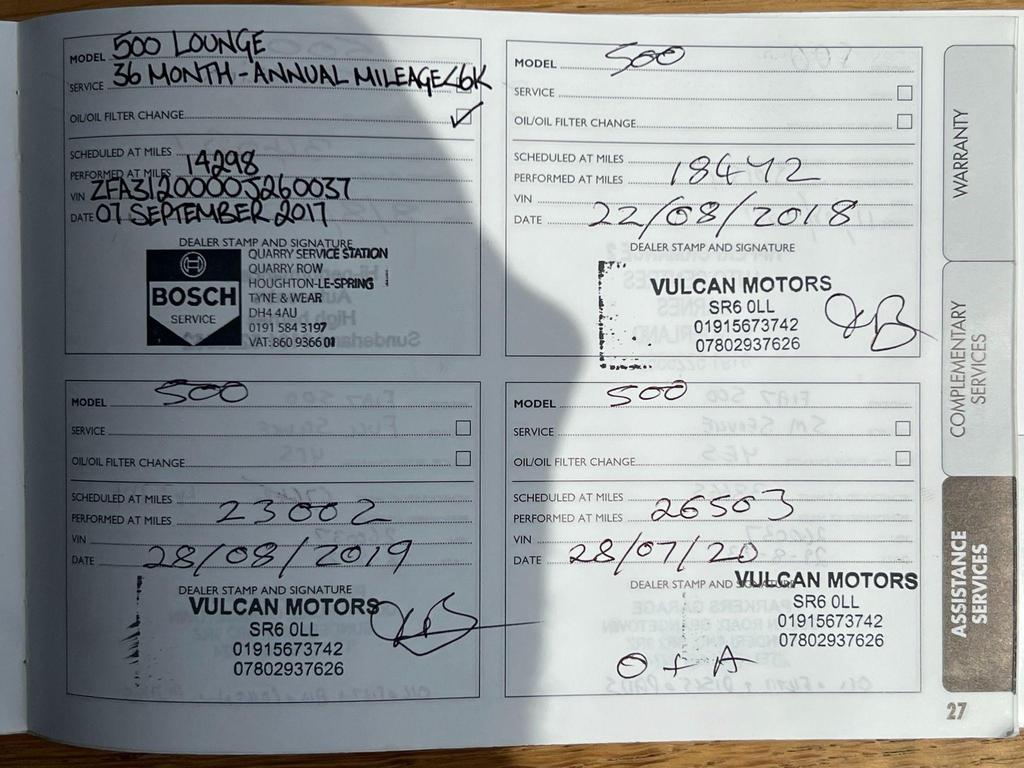 MODEL 500 LOUNGE
SERVICE 36 MONTH - ANNUAL MILEAGE <6K
OIL/OIL FILTER CHANGE ✓
SCHEDULED AT MILES
PERFORMED AT MILES 14298
VIN ZFA3120000J260037
DATE 07 SEPTEMBER 2017
DEALER STAMP AND SIGNATURE
BOSCH
SERVICE
QUARRY SERVICE STATION
QUARRY ROW
HOUGHTON-LE-SPRING
TYNE & WEAR
DH4 4AU
0191 584 3197
VAT: 860 9366 01
MODEL 500
SERVICE
OIL/OIL FILTER CHANGE
SCHEDULED AT MILES
PERFORMED AT MILES 18472
VIN
DATE 22/08/2018
DEALER STAMP AND SIGNATURE
VULCAN MOTORS
SR6 0LL
01915673742
07802937626
MODEL 500
SERVICE
OIL/OIL FILTER CHANGE
SCHEDULED AT MILES
PERFORMED AT MILES 23002
VIN
DATE 28/08/2019
DEALER STAMP AND SIGNATURE
VULCAN MOTORS
SR6 0LL
01915673742
07802937626
MODEL 500
SERVICE
OIL/OIL FILTER CHANGE
SCHEDULED AT MILES
PERFORMED AT MILES 26503
VIN
DATE 28/07/20
DEALER STAMP AND SIGNATURE
VULCAN MOTORS
SR6 0LL
01915673742
07802937626
O + A
WARRANTY
COMPLEMENTARY
SERVICES
ASSISTANCE
SERVICES
27